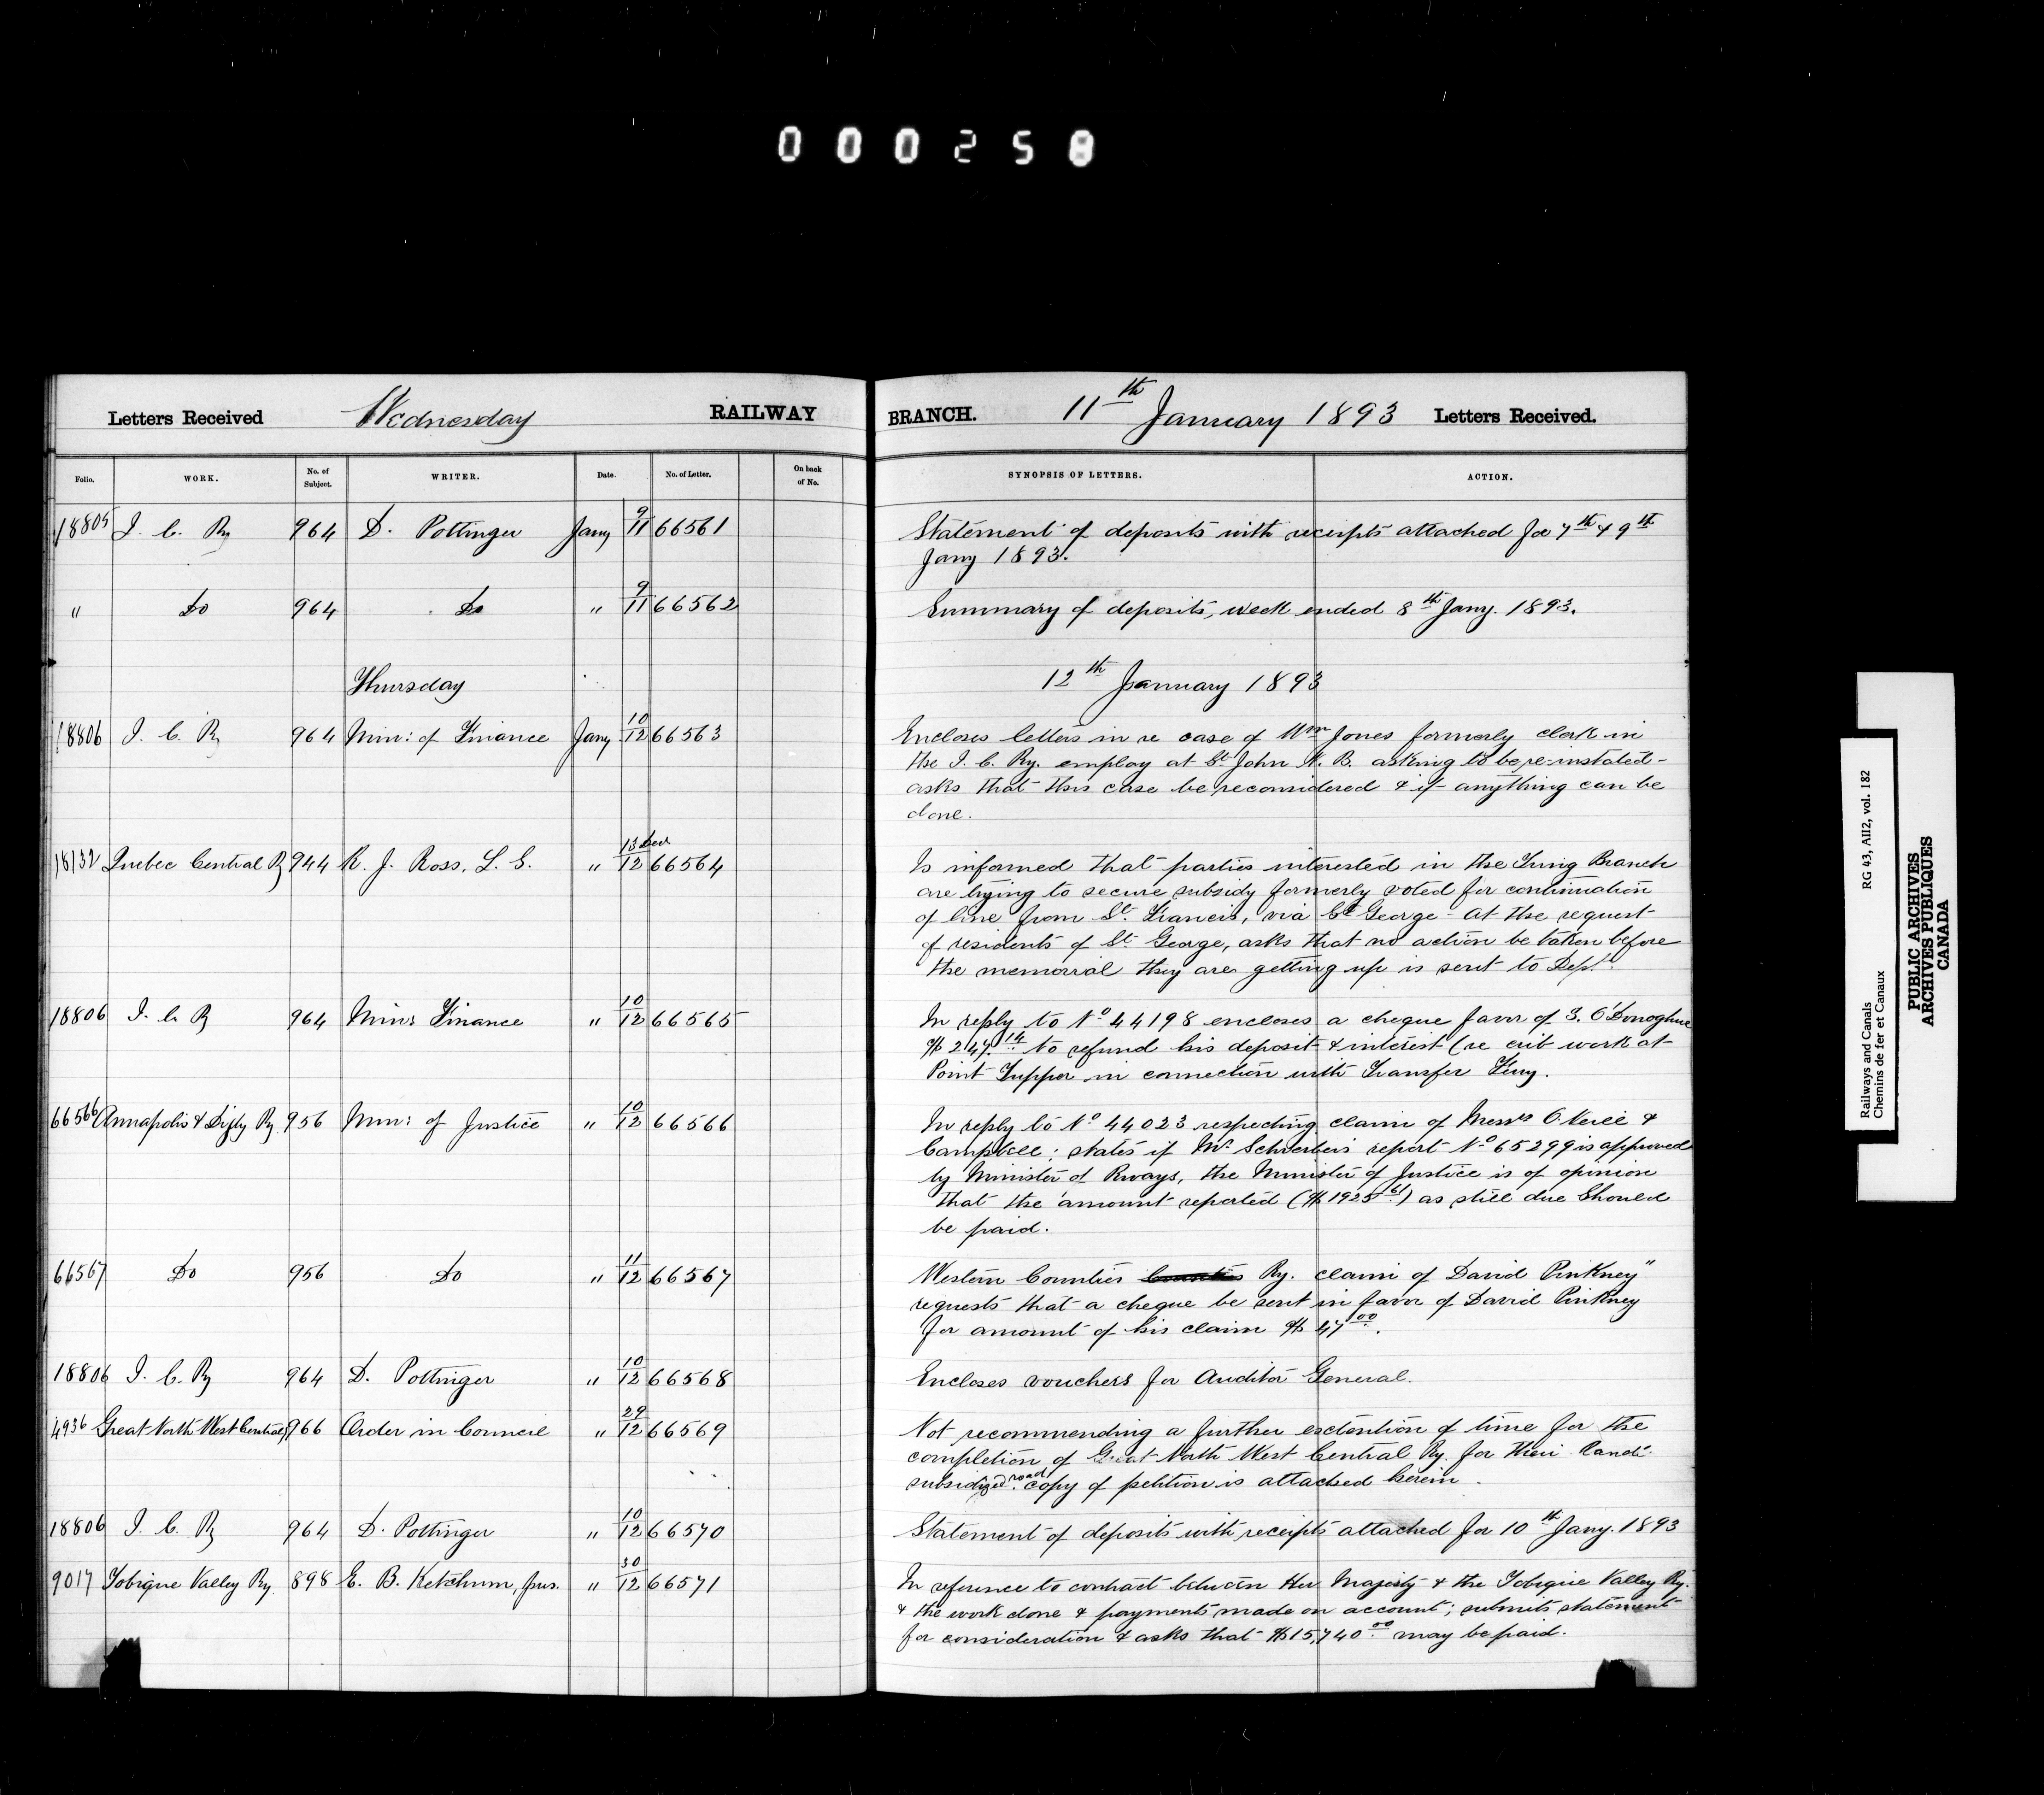 000258
Letters Received Wednesday RAILWAY BRANCH. 11th January 1893 Letters Received.
Folio. WORK. No. of Subject. WRITER. Date. No. of Letter. On back of No. SYNOPSIS OF LETTERS. ACTION.
18805 I. C. Ry 964 D. Pottinger Jany 9/11 66561 Statement of deposits with receipts attached for 7th & 9th
Jany 1893.
" Do 964 Do " 9/11 66562 Summary of deposits, week ended 8th Jany. 1893.
Thursday 12th January 1893
18806 I. C. Ry 964 Min: of Finance Jany 10/12 66563 Encloses letters in re case of Wm Jones formerly clerk in
the I. C. Ry. employ at St John N. B. asking to be re-instated -
asks that this case be reconsidered & if anything can be
done.
18132 Quebec Central Ry 944 R. J. Ross, L. S. " 13 Dec/12 66564 Is informed that parties interested in the Tring Branch
are trying to secure subsidy formerly voted for continuation
of line from St. Francis, via St George - At the request
of residents of St George, asks that no action be taken before
the memorial they are getting up is sent to Dept.
18806 I. C. Ry 964 Mins Finance " 10/12 66565 In reply to No 44198 encloses a cheque favor of S. O'Donoghue
$247.14 to refund his deposit & interest (re crib work at
Point Tupper in connection with Transfer Ferry.
66566 Annapolis & Digby Ry. 956 Min: of Justice " 10/12 66566 In reply to No 44023 respecting claim of Messrs O'Neill &
Campbell; states if Mr Schreiber's report No 65299 is approved
by Minister of Rways, the Minister of Justice is of opinion
that the amount reported ($1925) as still due Should
be paid.
66567 Do 956 Do " 11/12 66567 Western Counties Ry. claim of David Pinkney"
requests that a cheque be sent in favor of David Pinkney
for amount of his claim $47.00.
18806 I. C. Ry 964 D. Pottinger " 10/12 66568 Encloses vouchers for Auditor General.
4936 Great North West Central 966 Order in Council " 29/12 66569 Not recommending a further extention of time for the
completion of Great North West Central Ry. for their land
subsidized road. copy of petition is attached herein.
18806 I. C. Ry 964 D. Pottinger " 10/12 66570 Statement of deposits with receipts attached for 10th Jany. 1893
9017 Tobique Valley Ry. 898 E. B. Ketchum, " 30/12 66571 In reference to contract between Her Majesty & the Tobique Valley Ry.
& the work done & payments made on account; submits statement
for consideration & asks that $15,740.00 may be paid.
Railways and Canals RG 43, AII2, vol. 182
Chemins de fer et Canaux
PUBLIC ARCHIVES
ARCHIVES PUBLIQUES
CANADA